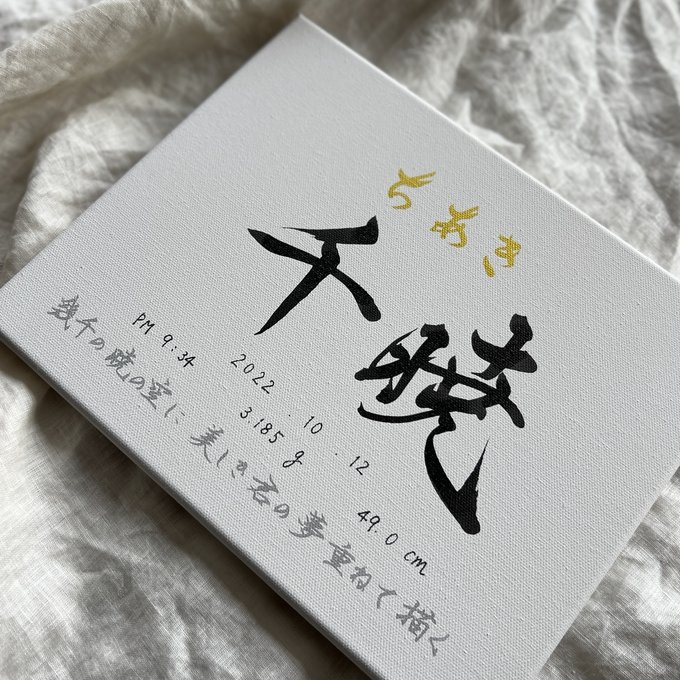 ちあき
千暁
2022.10.12
PM 9:34 3.185g 49.0cm
幾千の暁の空に 美しき君の夢重ねて描く